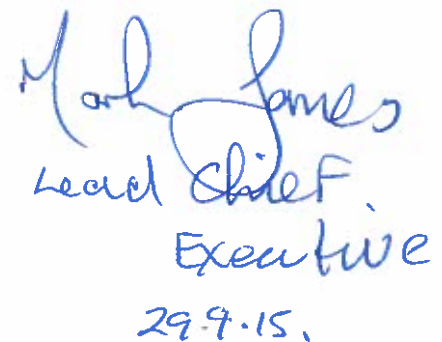 Mark James
Lead Chief
Executive
29.9.15.